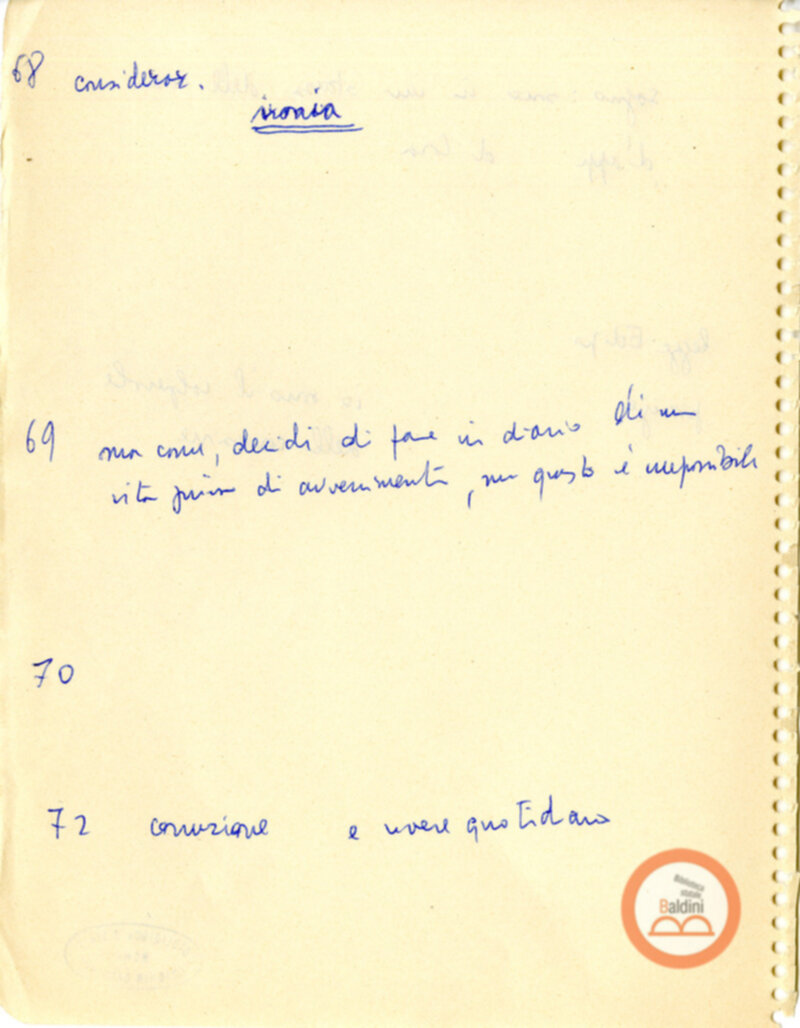 68 consideraz.
ironia
69 ma come, decidi di fare un diario di una
vita priva di avvenimenti, ma questo è impossibile
70
72 corruzione e vivere quotidiano
Biblioteca
statale
Baldini